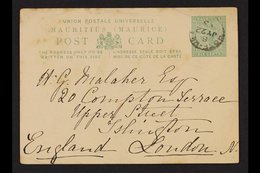 UNION POSTALE UNIVERSELLE
MAURITIUS (MAURICE)
POST CARD
THE ADDRESS ONLY TO BE
WRITTEN ON THIS SIDE
W. G. Malaher Esq
20 Compton Terrace
Upper Street
Islington
England London N.